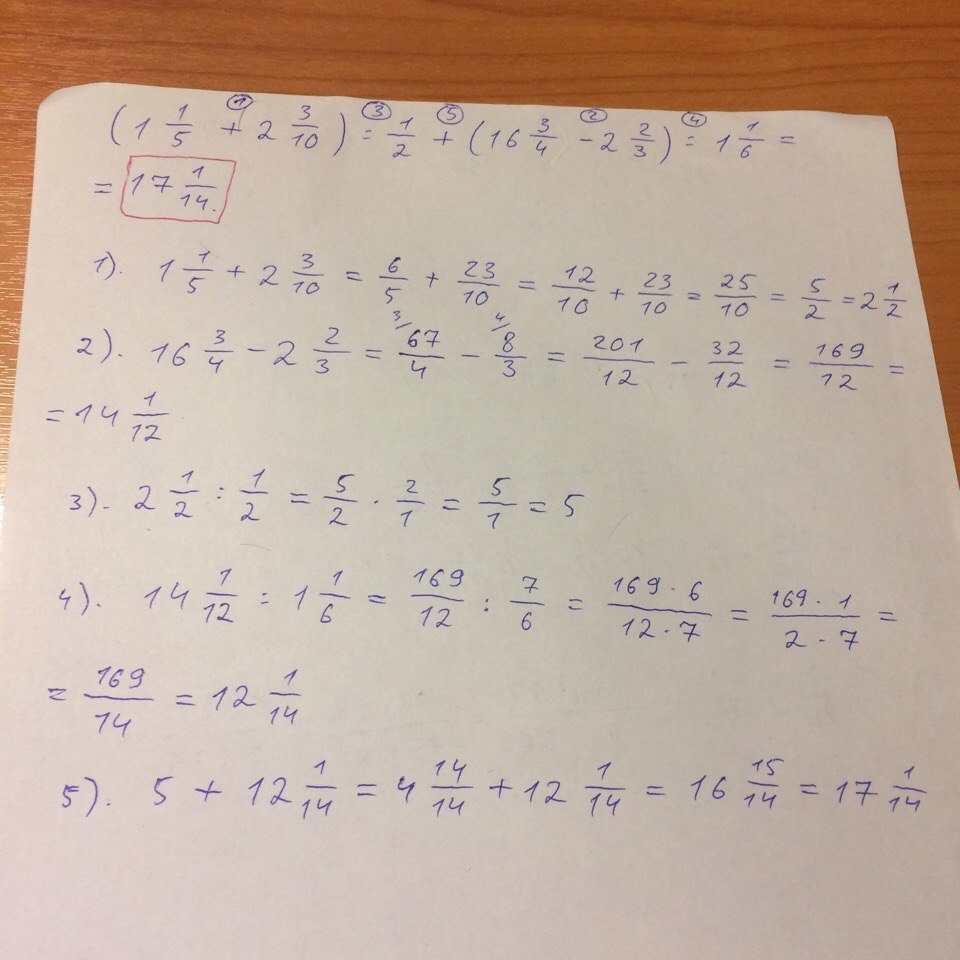 (1 1/5 + 2 3/10) : 1/2 + (16 3/4 - 2 2/3) : 1 1/6 =
① ③ ⑤ ② ④
= 17 1/14.
1). 1 1/5 + 2 3/10 = 6/5 + 23/10 = 12/10 + 23/10 = 25/10 = 5/2 = 2 1/2
2). 16 3/4 - 2 2/3 = 3/ 67/4 - 4/ 8/3 = 201/12 - 32/12 = 169/12 =
= 14 1/12
3). 2 1/2 : 1/2 = 5/2 · 2/1 = 5/1 = 5
4). 14 1/12 : 1 1/6 = 169/12 : 7/6 = 169 · 6/12 · 7 = 169 · 1/2 · 7 =
= 169/14 = 12 1/14
5). 5 + 12 1/14 = 4 14/14 + 12 1/14 = 16 15/14 = 17 1/14